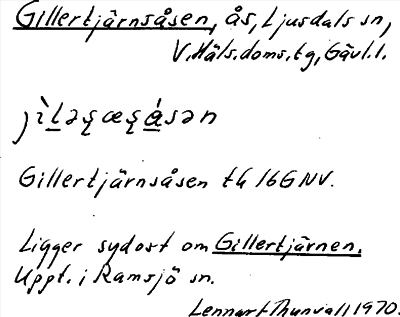 Gillertjärnsåsen, ås, Ljusdals sn,
V. Häls. doms. tg, Gävl. l.
Gillertjärnsåsen tk 16G NV.
Ligger sydost om Gillertjärnen.
Uppt. i Ramsjö sn.
Lennart Thunvall 1970.